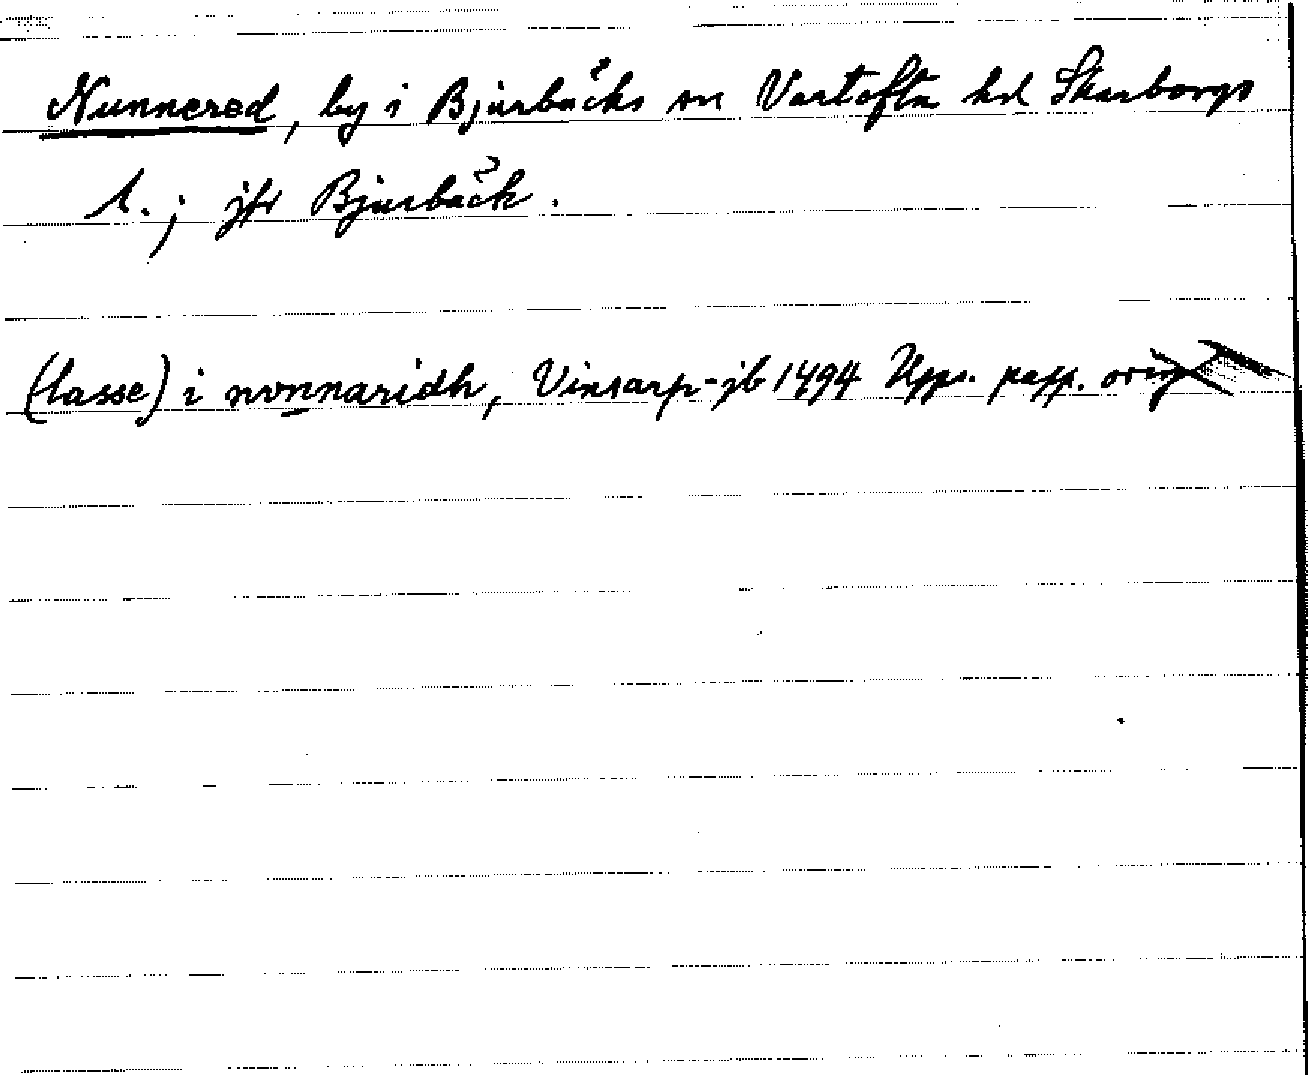 Nunnered, by i Bjurbäcks sn Vartofta hd Skarborgs
l.; jfr Bjurbäck.
(lasse) i nonnaridh, Vinsarp-jb 1494 Upps. papp. orig